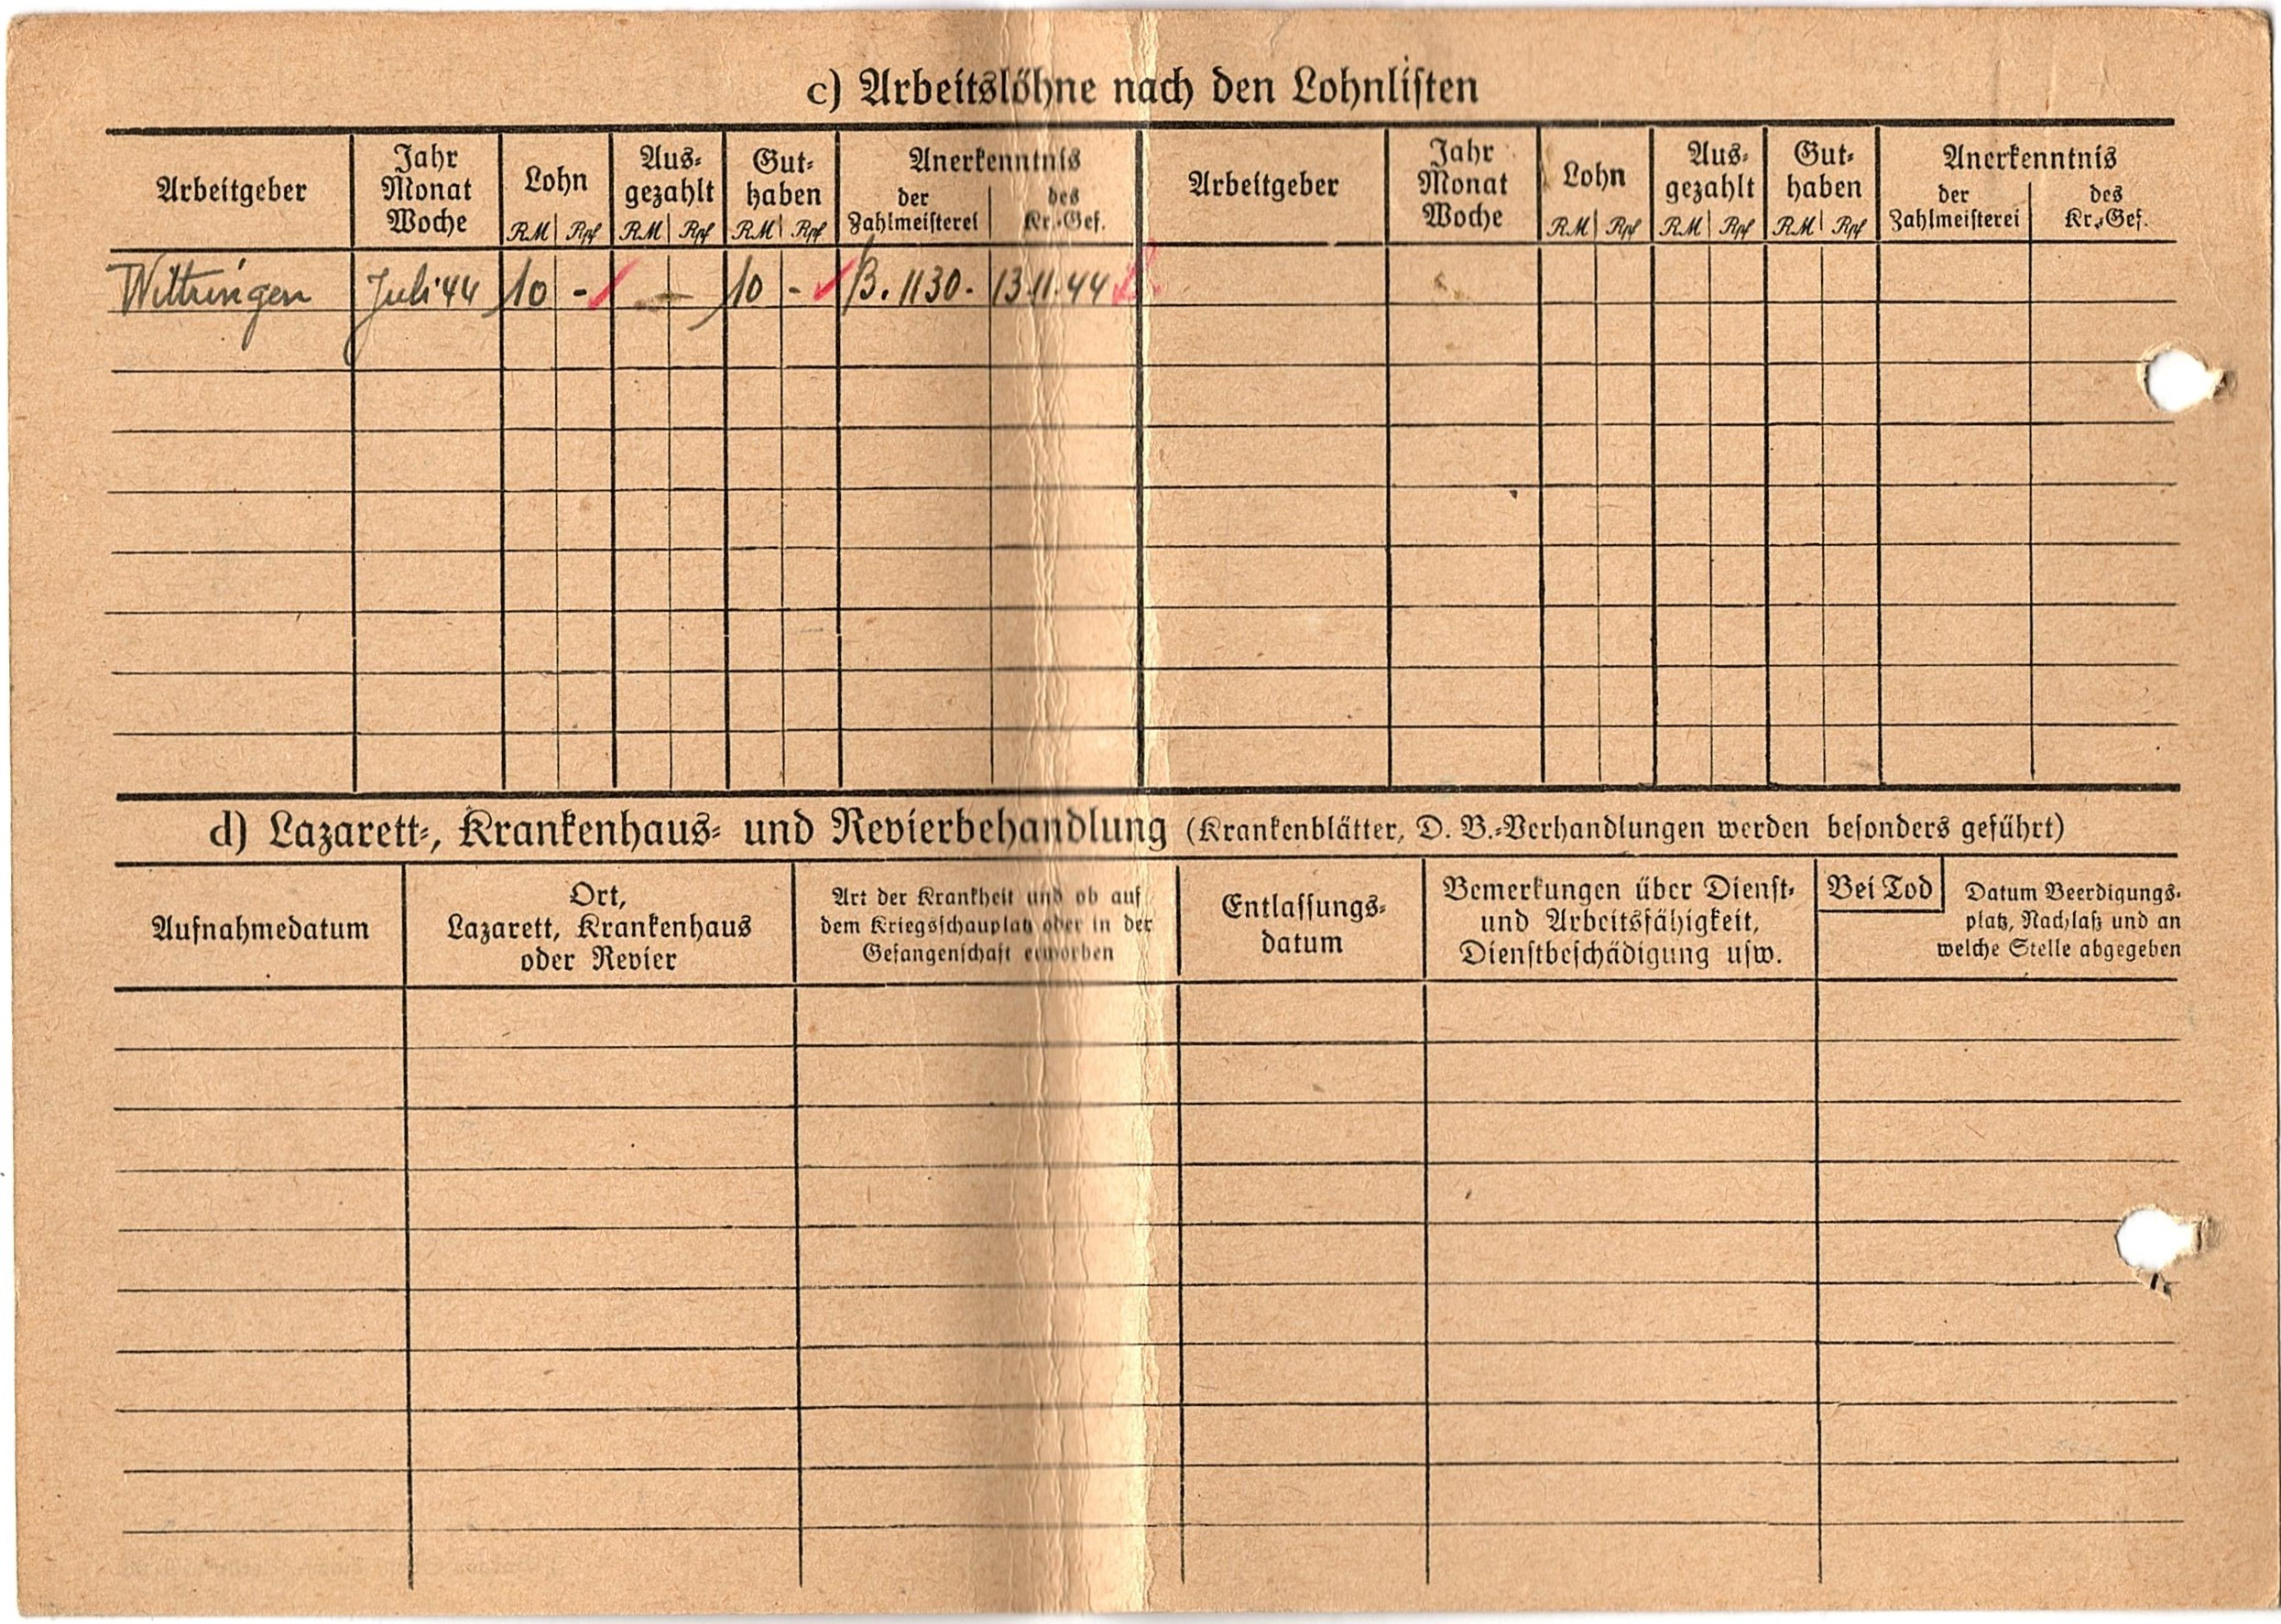 c) Arbeitslöhne nach den Lohnlisten
Arbeitgeber
Jahr
Monat
Woche
Lohn
RM Rpf
Aus-
gezahlt
RM Rpf
Gut-
haben
RM Rpf
Anerkenntnis
der
Zahlmeisterei
des
Kr.-Gef.
Arbeitgeber
Jahr
Monat
Woche
Lohn
RM Rpf
Aus-
gezahlt
RM Rpf
Gut-
haben
RM Rpf
Anerkenntnis
der
Zahlmeisterei
des
Kr.-Gef.
Wittringen Juli 44 10 - 10 - B. 1130. 13.11.44
d) Lazarett-, Krankenhaus- und Revierbehandlung (Krankenblätter, D. B.-Verhandlungen werden besonders geführt)
Aufnahmedatum
Ort,
Lazarett, Krankenhaus
oder Revier
Art der Krankheit und ob auf
dem Kriegsschauplatz oder in der
Gefangenschaft erworben
Entlassungs-
datum
Bemerkungen über Dienst-
und Arbeitsfähigkeit,
Dienstbeschädigung usw.
Bei Tod
Datum Beerdigungs-
platz, Nachlaß und an
welche Stelle abgegeben